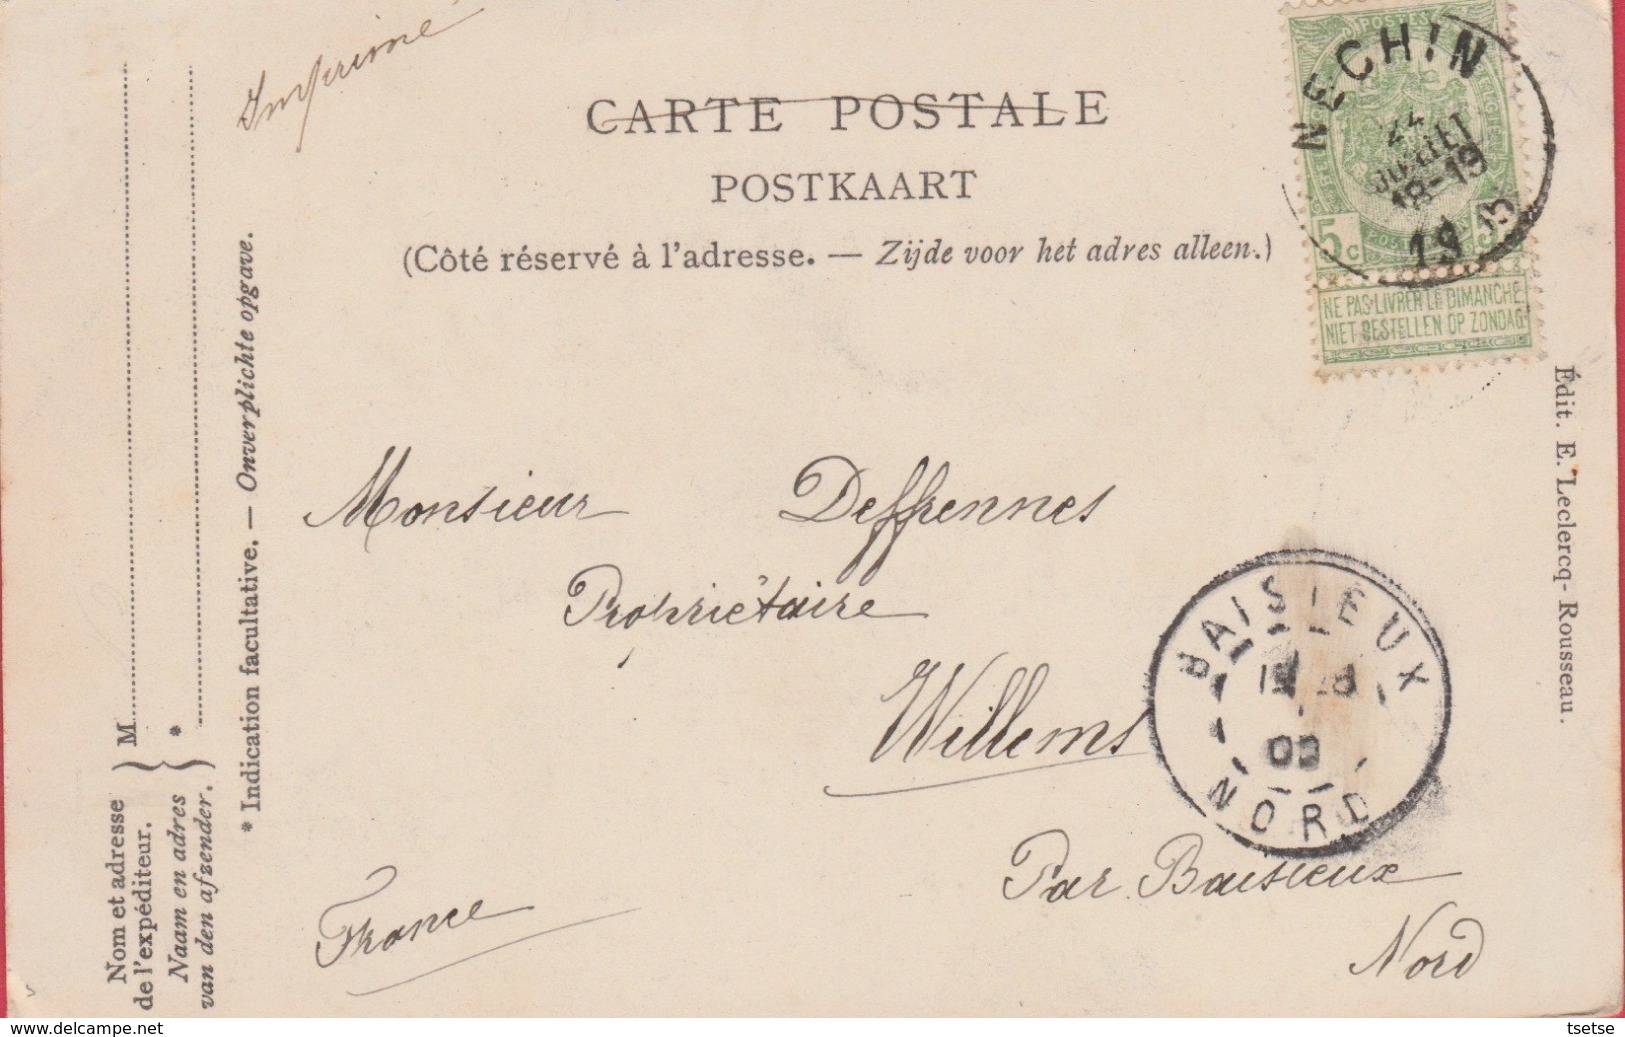 Imprimé
CARTE POSTALE
POSTKAART
(Côté réservé à l'adresse. — Zijde voor het adres alleen.)
NECHIN
JUIL
18-19
19
POSTES
5c
NE PAS LIVRER LE DIMANCHE
NIET BESTELLEN OP ZONDAG
Édit. E. Leclercq-Rousseau.
Monsieur Deffrennes
Propriétaire
Willems
Par Baisieux
Nord
France
BAISIEUX
NORD
* Indication facultative. — Onverplichte opgave.
M
*
Nom et adresse
de l'expéditeur.
Naam en adres
van den afzender.
www.delcampe.net
tsetse